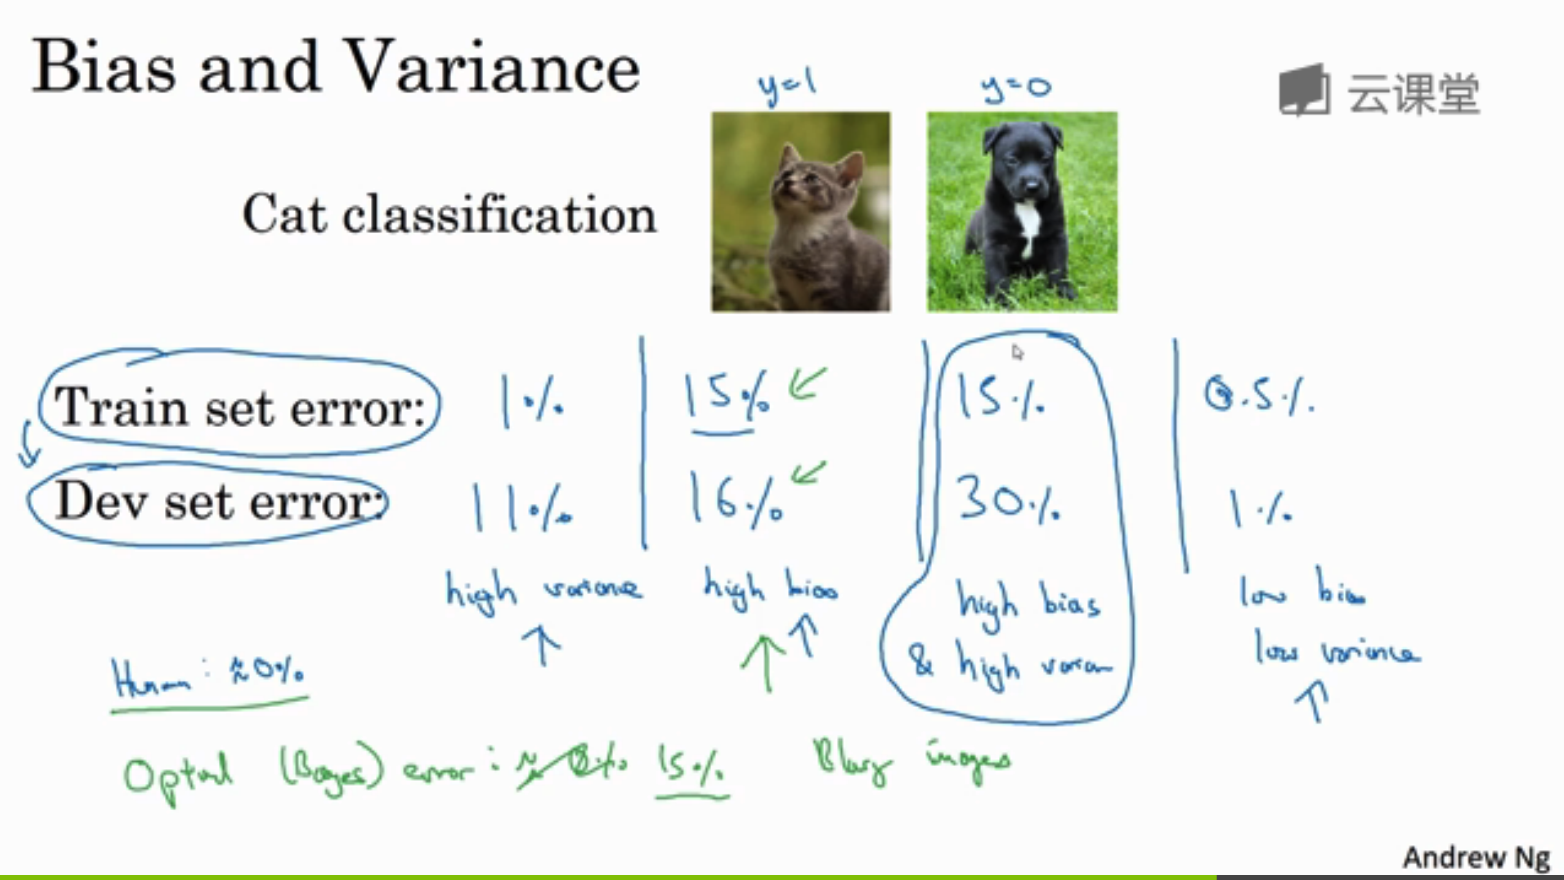 Bias and Variance
y=1
y=0
云课堂
Cat classification
Train set error: 1% 15% 15% 0.5%
Dev set error: 11% 16% 30% 1%
high variance
high bias
high bias
& high varian
low bias
low variance
Human: ≈0%
Optimal (Bayes) error: ≈ 0% 15% Blurry images
Andrew Ng